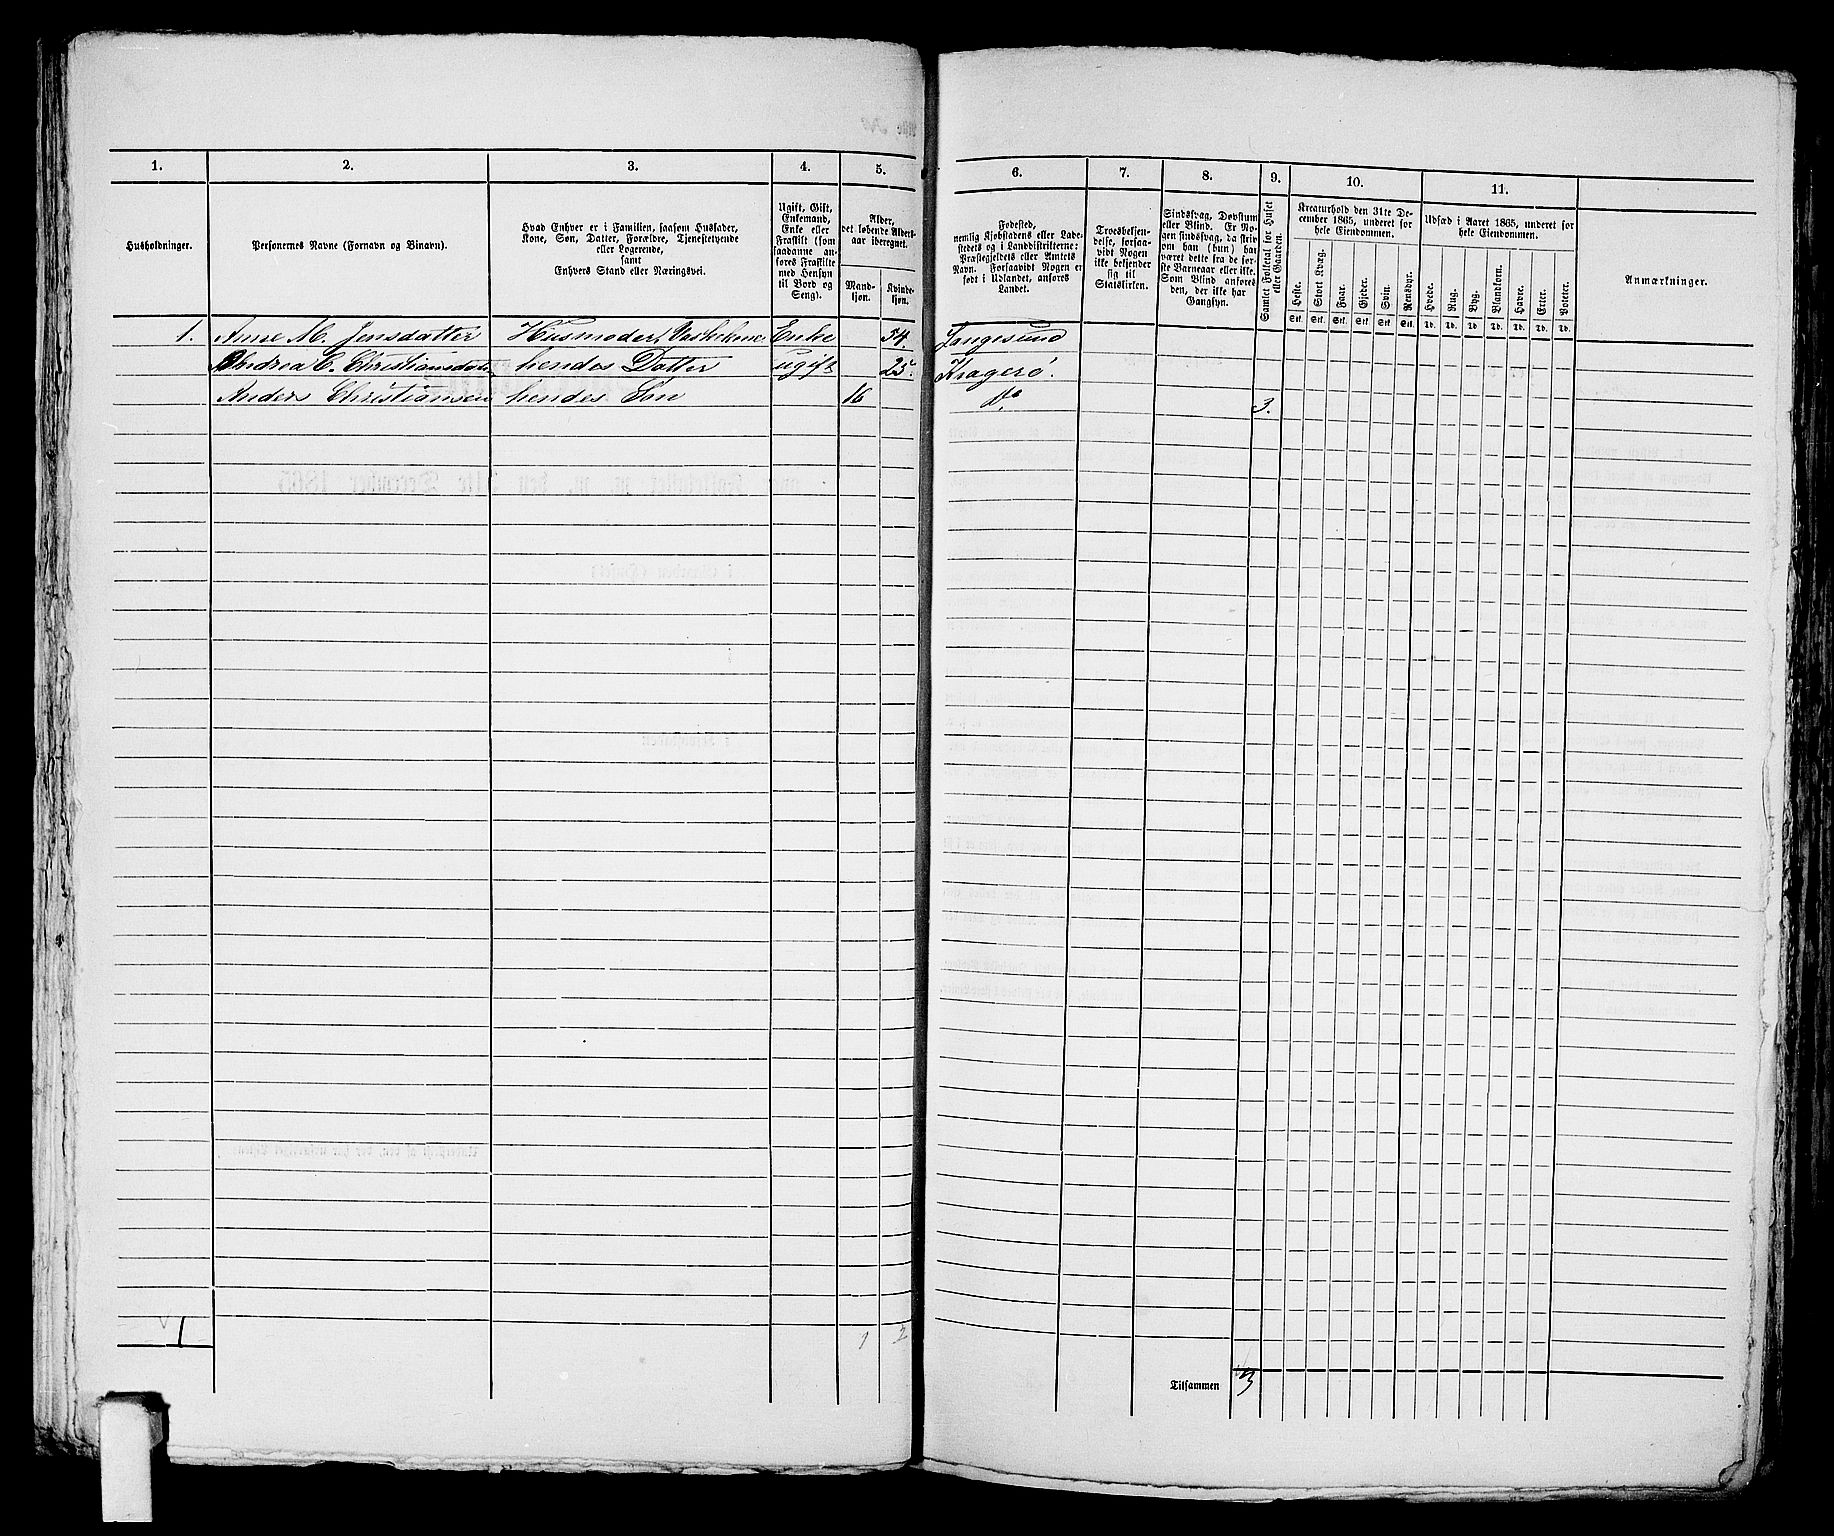 1. 2. 3. 4. 5. 6. 7. 8. 9. 10. 11.
Husholdninger.
Personernes Navne (Fornavn og Binavn).
Hvad Enhver er i Familien, saasom Husfader,
Kone, Søn, Datter, Forældre, Tjenestetyende
eller Logerende,
samt
Enhvers Stand eller Næringsvei.
Ugift, Gift,
Enkemand,
Enke eller
Fraskilt (som
saadanne an-
føres Fraskilte
med Hensyn
til Bord og
Seng).
Alder,
det løbende Alders-
aar iberegnet.
Mand-
kjøn.
Kvinde-
kjøn.
Fødested,
nemlig Kjøbstadens eller Lade-
stedets og i Landdistrikterne:
Præstegjeldets eller Amtets
Navn. Forsaavidt Nogen er
født i Udlandet, anføres
Landet.
Troesbekjen-
delse, forsaa-
vidt Nogen
ikke bekjender
sig til
Statskirken.
Sindssvag, Døvstum
eller Blind. Er No-
gen sindssvag, da skriv
om han (hun) har
været dette fra de før-
ste Barneaar eller ikke.
Som Blind anføres
den, der ikke har
Gangsyn.
Samlet Folketal for Huset
eller Gaarden.
Kreaturhold den 31te De-
cember 1865, underet for
hele Eiendommen.
Heste.
Stort Kvæg.
Faar.
Gjeder.
Svin.
Rensdyr.
Stk. Stk. Stk. Stk. Stk. Stk.
Udsæd i Aaret 1865, underet for
hele Eiendommen.
Hvede.
Rug.
Byg.
Blandkorn.
Havre.
Erter.
Poteter.
Td. Td. Td. Td. Td. Td. Td.
Anmærkninger.
1. Anne M. Jensdatter Husmoder, Vaskekone Enke 54. Langesund
Andrea C. Christiansdatter hendes Datter ugift 25 Kragerö.
Anders Christiansen hendes Son 16 Do 3.
1 1 2
Tilsammen 3